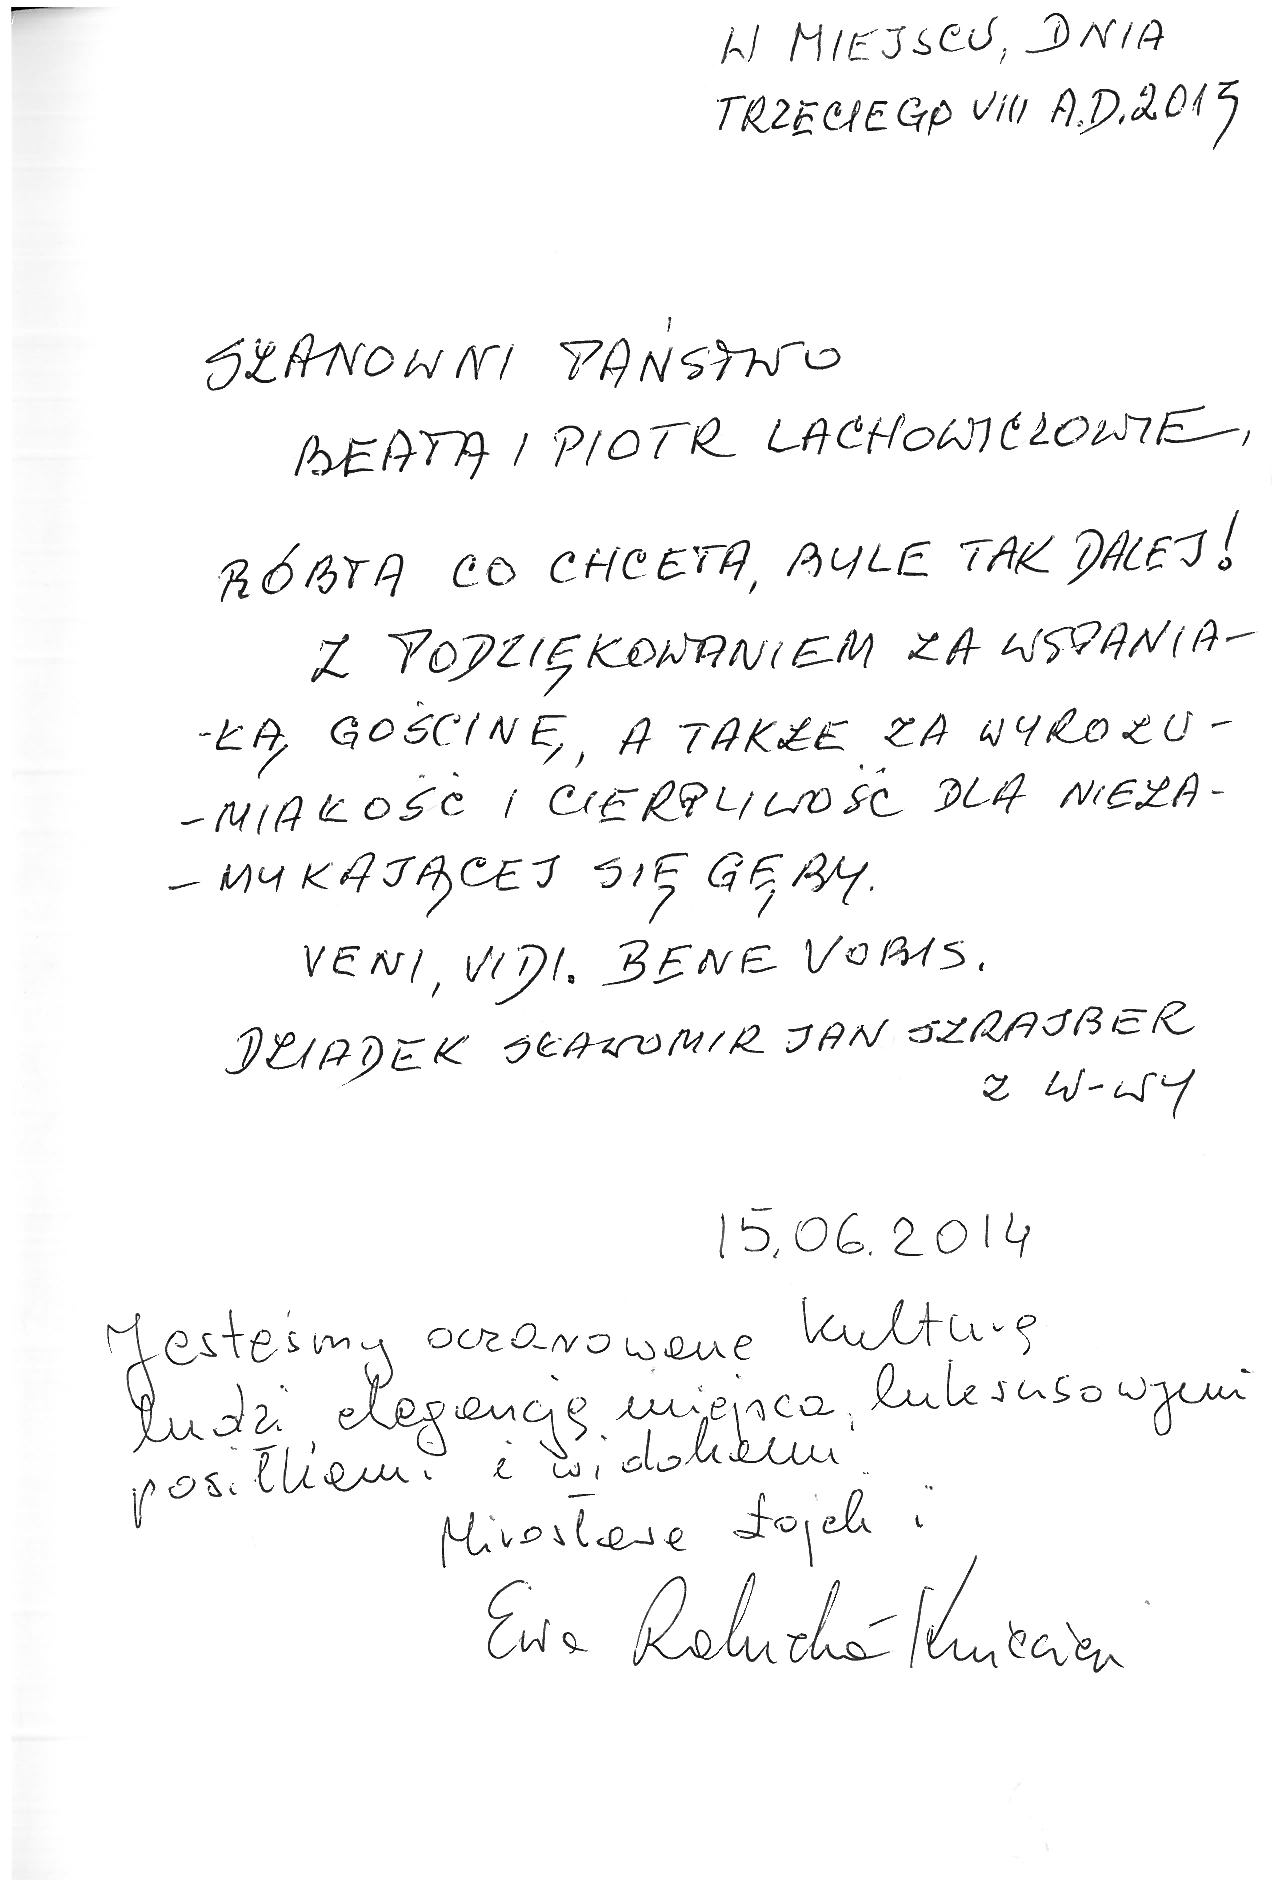 W MIEJSCU, DNIA
TRZECIEGO VIII A.D. 2015
SZANOWNI PAŃSTWO
BEATA I PIOTR LACHOWICZOWIE,
RÓBTA CO CHCETA, BYLE TAK DALEJ!
Z PODZIĘKOWANIEM ZA WSPANIA-
-ŁĄ GOŚCINĘ, A TAKŻE ZA WYROZU-
-MIAŁOŚĆ I CIERPLIWOŚĆ DLA NIEZA-
-MYKAJĄCEJ SIĘ GĘBY.
VENI, VIDI. BENE VOBIS.
DZIADEK SŁAWOMIR JAN SZRAJBER
Z W-WY
15.06.2014
Jesteśmy oczarowane kulturą
ludzi, elegancją miejsca, luksusowymi
posiłkami i widokami
Mirosława Łojek i
Ewa